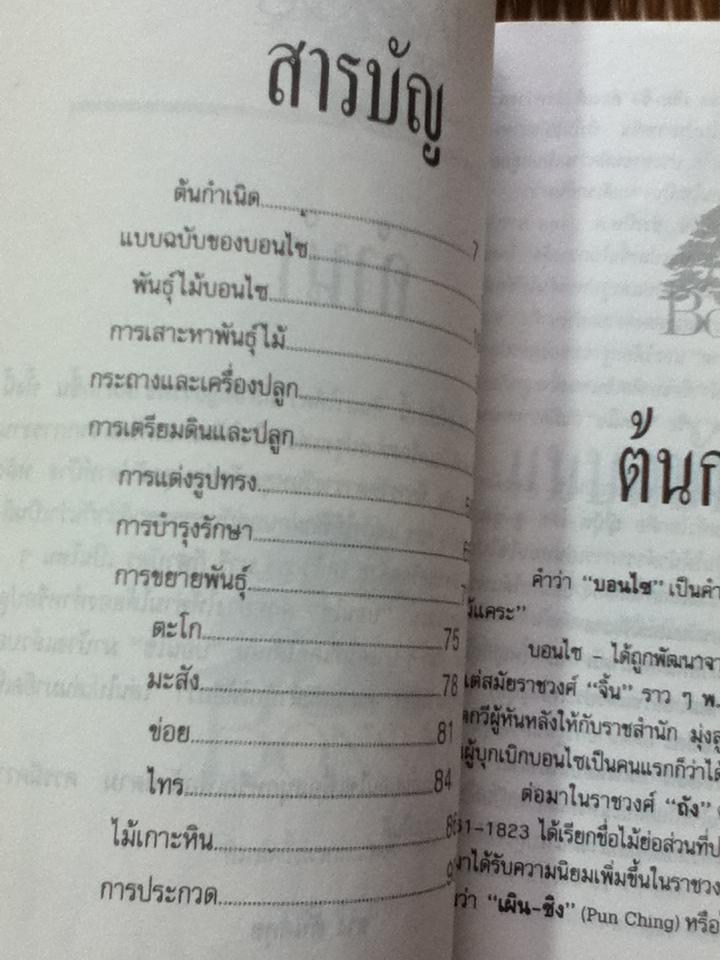 สารบัญ
ต้นกำเนิด 7
แบบฉบับของบอนไซ
พันธุ์ไม้บอนไซ
การเสาะหาพันธุ์ไม้
กระถางและเครื่องปลูก
การเตรียมดินและปลูก
การแต่งรูปทรง
การบำรุงรักษา
การขยายพันธุ์
ตะโก 75
มะสัง 78
ข่อย 81
ไทร 84
ไม้เกาะหิน
การประกวด
Bo
ต้นก
คำว่า “บอนไซ” เป็นคำ
แคระ”
บอนไซ – ได้ถูกพัฒนาจา
แต่สมัยราชวงศ์ “จิ้น” ราว ๆ พ.
กวีผู้หันหลังให้กับราชสำนัก มุ่งสู
ผู้บุกเบิกบอนไซเป็นคนแรกก็ว่าได้
ต่อมาในราชวงศ์ “ถัง”
1-1823 ได้เรียกชื่อไม้ย่อส่วนที่ป
มาได้รับความนิยมเพิ่มขึ้นในราชวง
ว่า “เผิน-ชิง” (Pun Ching) หรือ